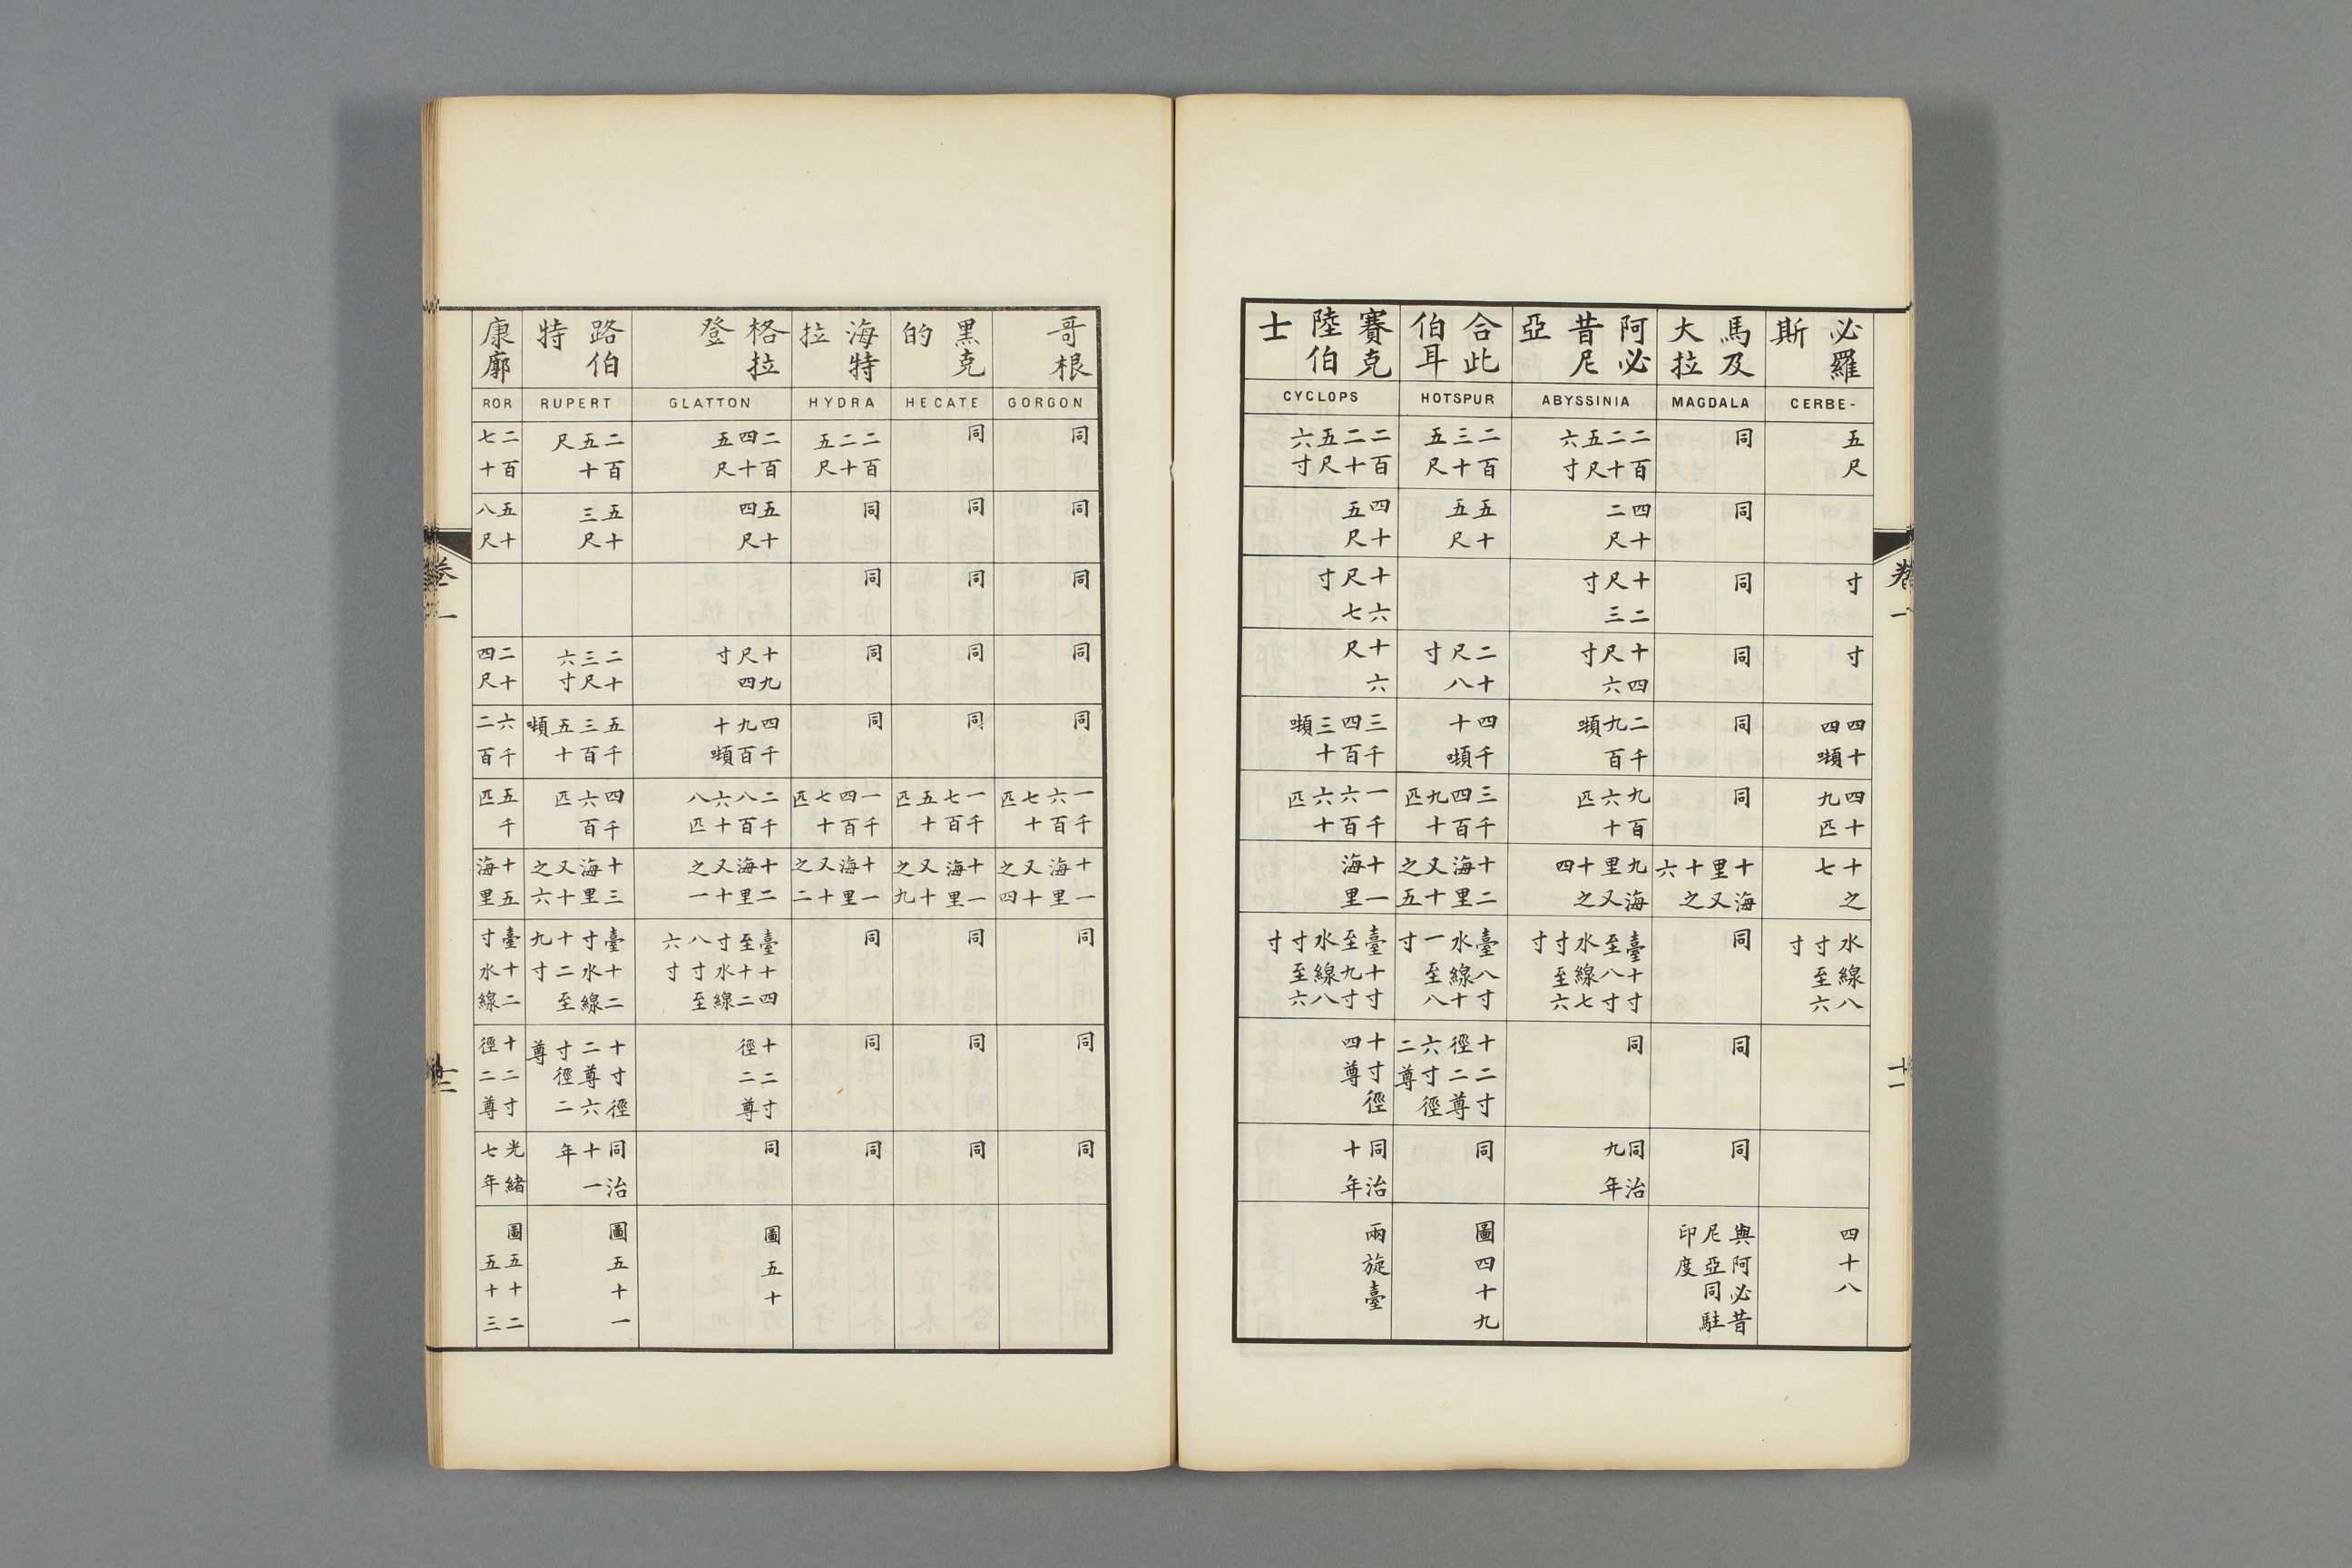 卷一
十一
必羅斯
CERBE-
五尺
寸
寸
四十四噸
四十九匹
十之七
水線八寸至六寸
四十八
馬及大拉
MAGDALA
同
同
同
同
同
同
十海里又十之六
同
同
同
與阿必昔尼亞同駐印度
阿必昔尼亞
ABYSSINIA
二百二十五尺六寸
四十二尺
十二尺三寸
十四尺六寸
二千九百噸
九百六十匹
九海里又十之四
臺十寸至八寸水線七寸至六寸
同
同治九年
合此伯耳
HOTSPUR
二百三十五尺
五十五尺
二十尺八寸
四千十噸
三千四百九十匹
十二海里又十之五
臺八寸水線十一寸至八寸
十二寸徑二尊六寸徑二尊
同
圖四十九
賽克陸伯士
CYCLOPS
二百二十五尺六寸
四十五尺
十六尺七寸
十六尺
三千四百三十噸
一千六百六十匹
十一海里
臺十寸至九寸水線八寸至六寸
十寸徑四尊
同治十年
兩旋臺
哥根
GORGON
同
同
同
同
同
一千六百七十匹
十一海里又十之四
同
同
同
黑克的
HECATE
同
同
同
同
同
一千七百五十匹
十一海里又十之九
同
同
同
海特拉
HYDRA
二百二十五尺
同
同
同
同
一千四百七十匹
十一海里又十之二
同
同
同
格拉登
GLATTON
二百四十五尺
五十四尺
十九尺四寸
四千九百十噸
二千八百六十八匹
十二海里又十之一
臺十四寸至十二寸水線八寸至六寸
十二寸徑二尊
同
圖五十
路伯特
RUPERT
二百五十尺
五十三尺
二十三尺六寸
五千三百五十噸
四千六百匹
十三海里又十之六
臺十二寸水線十二寸至九寸
十寸徑二尊六寸徑二尊
同治十一年
圖五十一
康廓
ROR
二百七十
五十八尺
二十四尺
六千二百
五千匹
十五海里
臺十二寸水線
十二寸徑二尊
光緒七年
圖五十二
五十三
卷一
十二